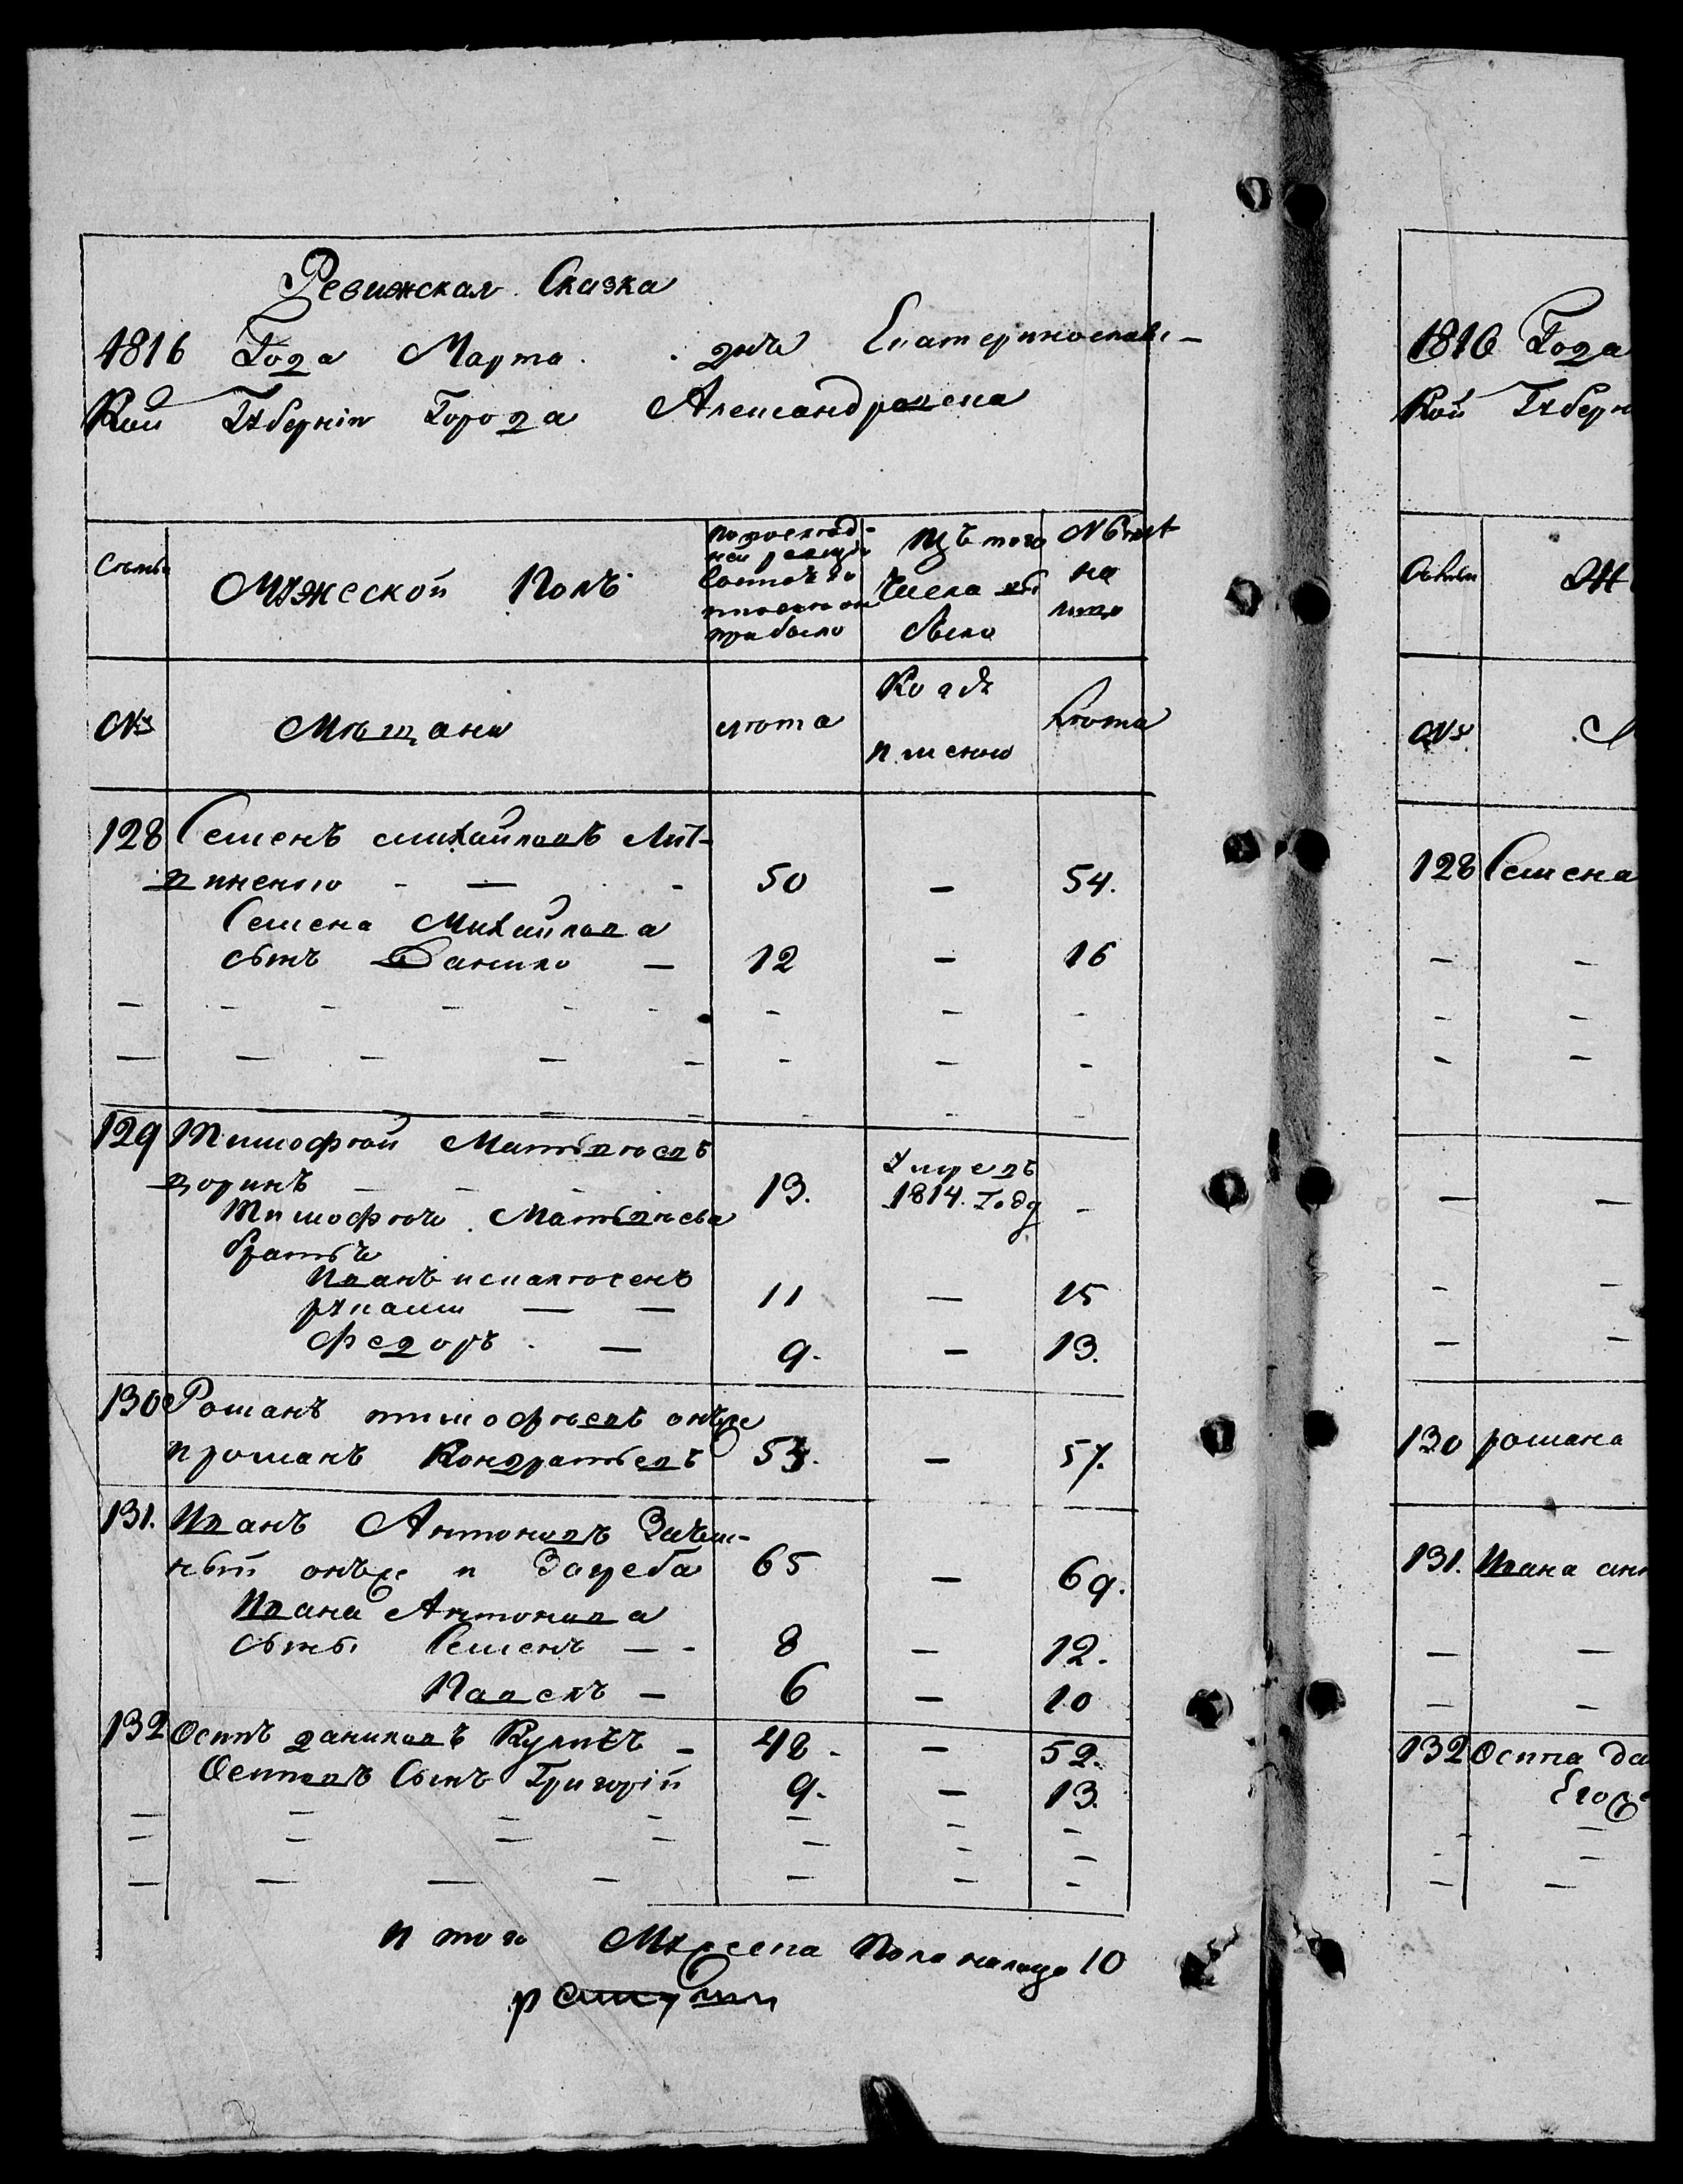 Ревижская Сказка
1816 Года Марта дня Екатеринославс-
кой Губерніи Города Александровска
Семьи
Мужеской Полъ
по послед-
ней ревизіи
состояло
и после он
прибыло
Изъ того
числа вы
было
Ныне
на
лицо
№
Мѣщане
лета
Когда
имянно
Лета
128 Семенъ Михайловъ Лит-
виненко - — - 50 — 54.
Семена Михайлова
сынъ Данило — 12 — 16
129 Тимофей Матвѣевъ
зоринъ 13. Умревъ 1814. Году -
Тимофея Матвѣева
братья
Иванъ
11 — 15
Федоръ — 9. — 13.
130 Романъ тимофѣевъ онъже
и романъ Кондратьевъ 53. — 57.
131. Иванъ Антоновъ
ный онъже и Загреба 65 — 69.
Ивана Антонова
сыны Семенъ — - 8 — 12.
Павелъ — 6 — 10
132 Осипъ даниловъ Куличъ — 48. — 52.
Осиповъ Сынъ Григорій 9. — 13.
итого Мужеска Пола налицо 10
1816 Года
кой Губерн
Семьи
№
128 Семена
130 романа
131. Ивана ант
132 Осипа да
Егоже